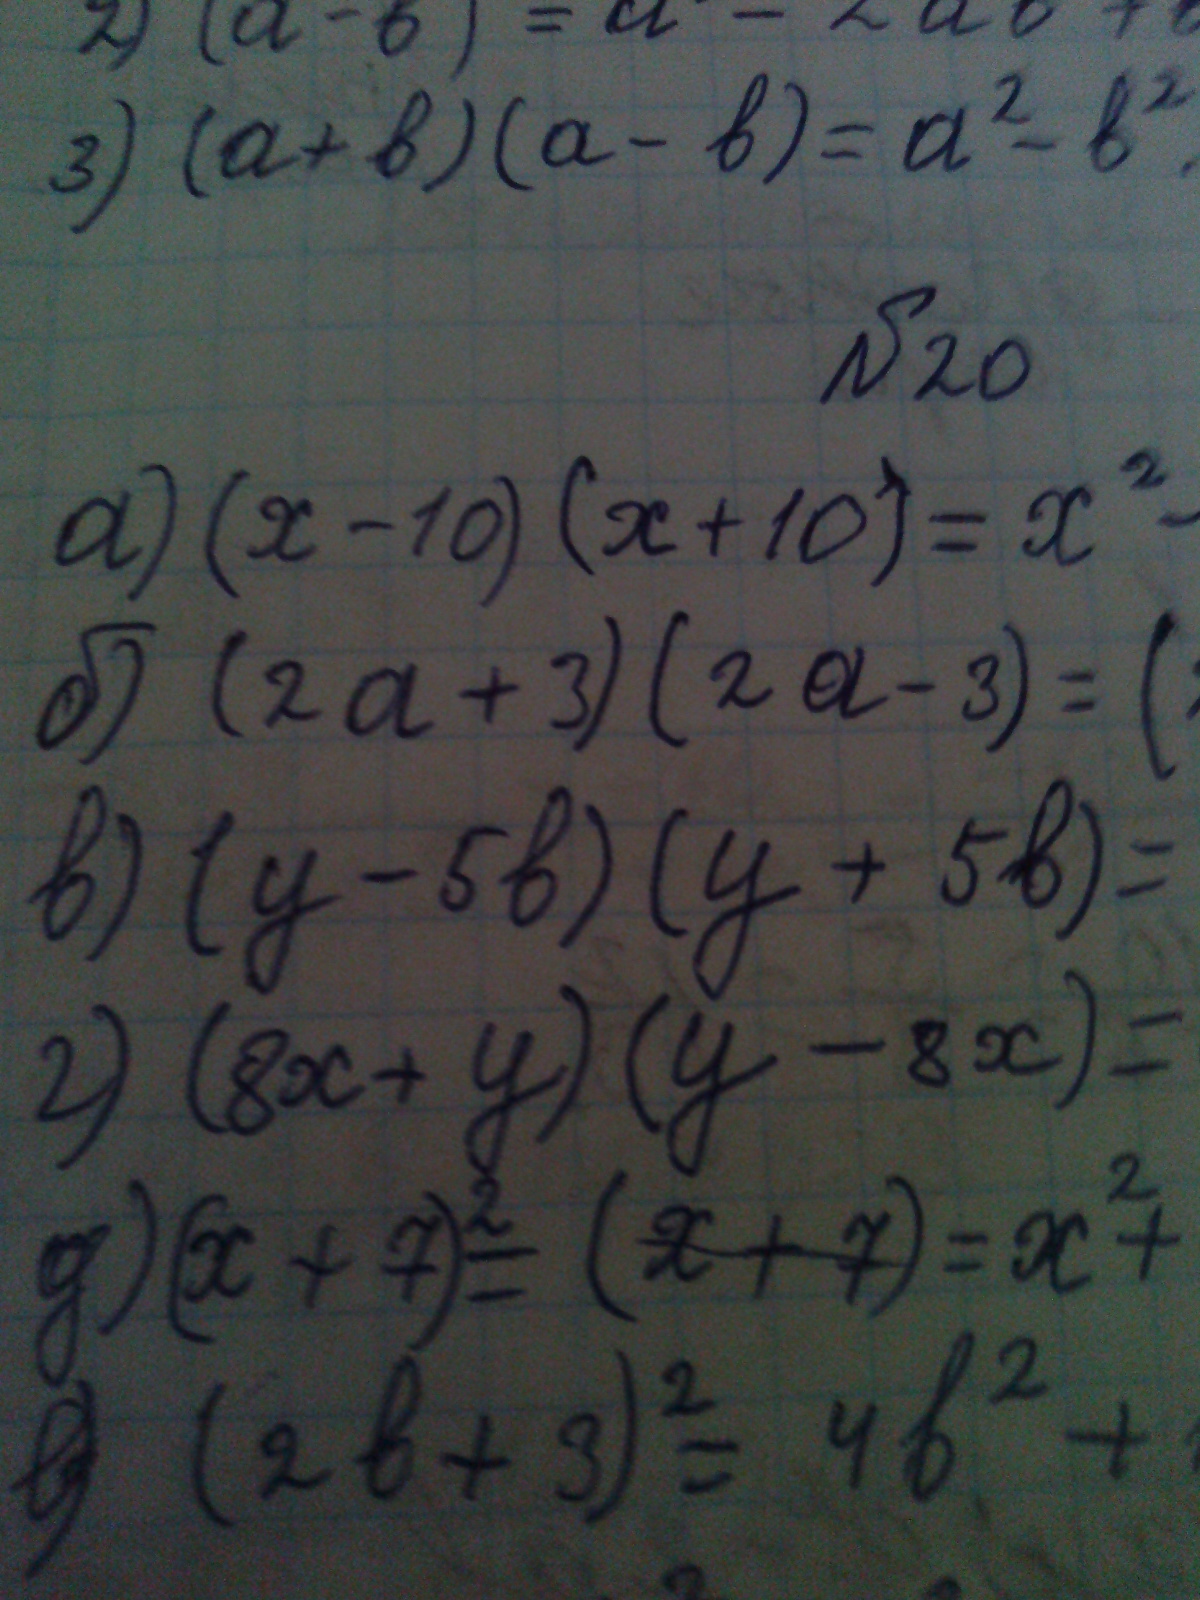 2) (a - b) = a - 2ab + b
3) (a + b)(a - b) = a² - b².
№20
а) (x - 10)(x + 10) = x² -
б) (2a + 3)(2a - 3) = (2
в) (y - 5b)(y + 5b) =
г) (8x + y)(y - 8x) =
д) (x + 7)² = (x + 7) = x² +
(2b + 3)² = 4b² +